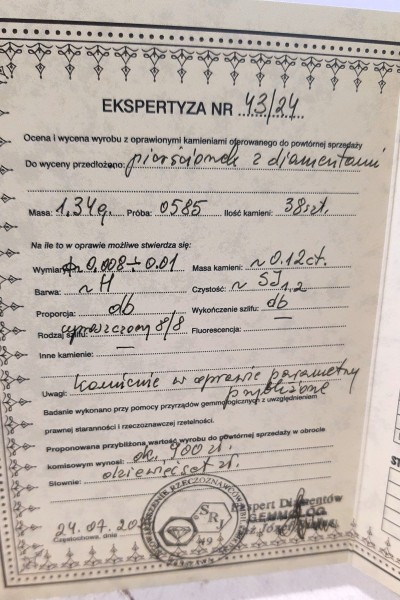 EKSPERTYZA NR 43/24
Ocena i wycena wyrobu z oprawionymi kamieniami oferowanego do powtórnej sprzedaży
Do wyceny przedłożono: pierścionek z diamentami
Masa: 1,34g. Próba: 0585 Ilość kamieni: 38szt.
Na ile to w oprawie możliwe stwierdza się:
~ 0.008 ÷ 0.01 Masa kamieni: ~ 0.12ct.
Barwa: ~ H Czystość: ~ SI1,2
Proporcja: db Wykończenie szlifu: db
Rodzaj szlifu: uproszczony 8/8 Fluorescencja: —
Inne kamienie: —
Uwagi: kamienie w oprawie parametry
przybliżone
Badanie wykonano przy pomocy przyrządów gemmologicznych z uwzględnieniem
prawnej staranności i rzeczoznawczej rzetelności.
Proponowana przybliżona wartość wyrobu do powtórnej sprzedaży w obrocie
komisowym wynosi: ok. 900 zł.
Słownie: dziewięćset zł.
STOWARZYSZENIE RZECZOZNAWCÓW
SRJ
Ekspert Diamentów
GEMMOLOG
24.07.20
Częstochowa, dnia
ST